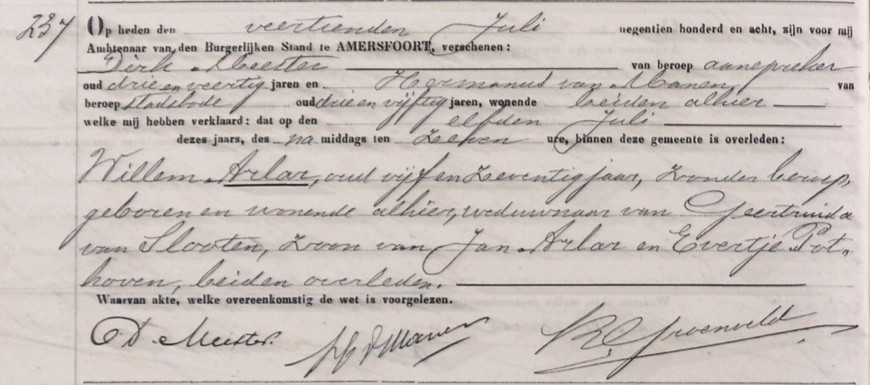 237 Op heden den veertienden Juli negentien honderd en acht, zijn voor mij
Ambtenaar van den Burgerlijken Stand te AMERSFOORT, verschenen:
Dirk Meester van beroep aanspreker
oud drie en veertig jaren en Hermanus van Manen, van
beroep stadsbode oud drie en vijftig jaren, wonende beiden alhier
welke mij hebben verklaard: dat op den elfden Juli
dezes jaars, des na middags ten zeven ure, binnen deze gemeente is overleden:
Willem Arlar, oud vijf en zeventig jaar, zonder beroep,
geboren en wonende alhier, weduwnaar van Geertruida
van Slooten, zoon van Jan Arlar en Evertje Pot-
hoven, beiden overleden.
Waarvan akte, welke overeenkomstig de wet is voorgelezen.
D. Meester. HvManen Groenveld